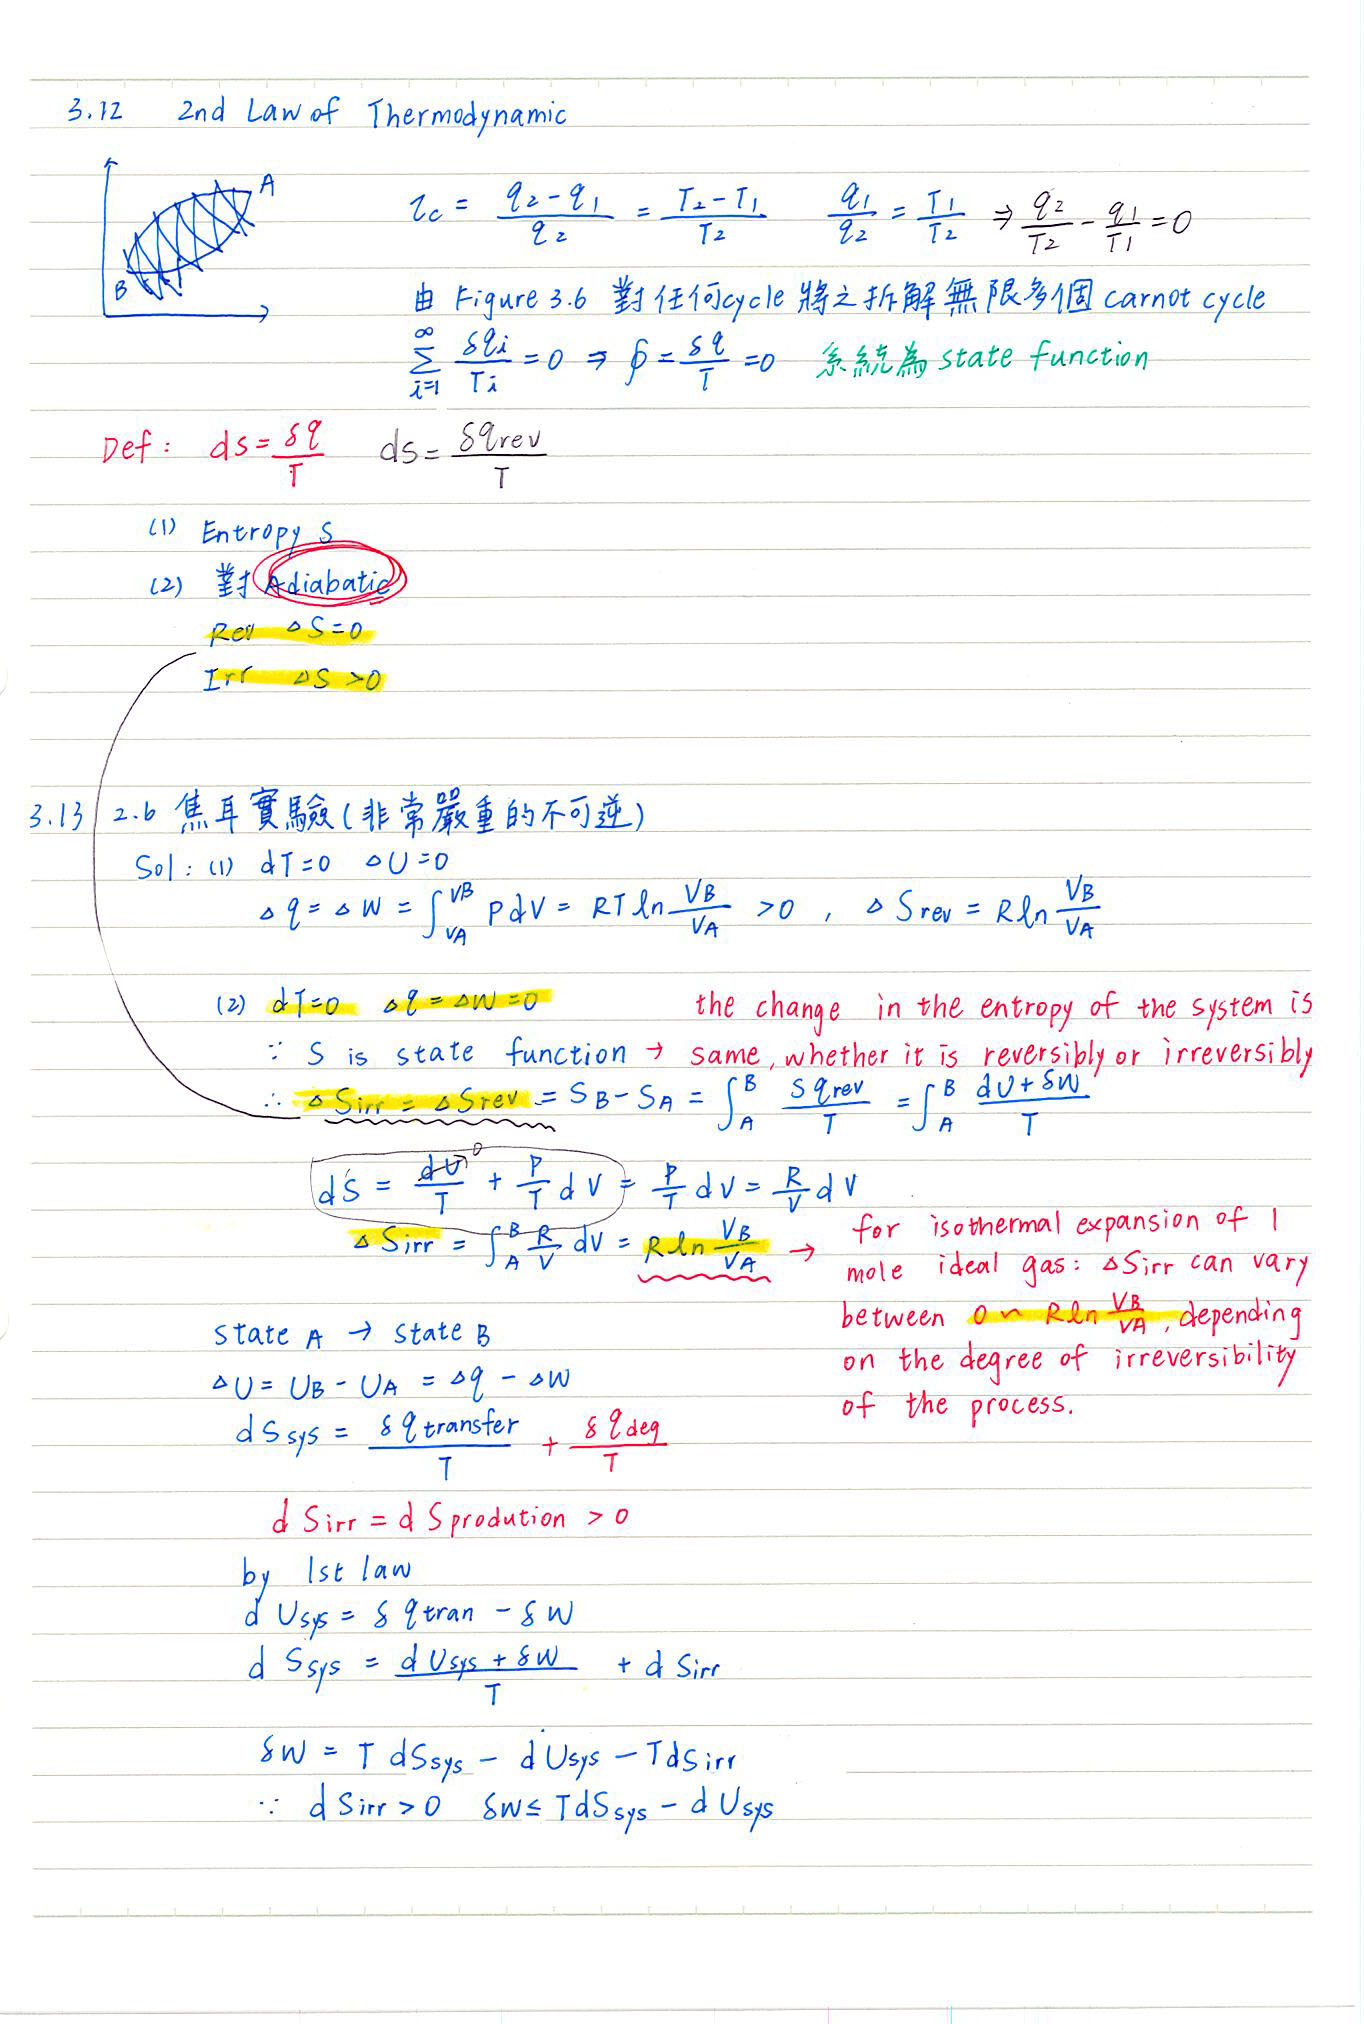 3.12 2nd Law of Thermodynamic
A
B
ηc = (q2 - q1)/q2 = (T2 - T1)/T2 q1/q2 = T1/T2 ⇒ q2/T2 - q1/T1 = 0
由 Figure 3.6 對任何cycle 將之拆解無限多個 carnot cycle
∑_{i=1}^{∞} δqi/Ti = 0 ⇒ ∮ = δq/T = 0 系統為 state function
Def : ds = δq/T ds = δqrev/T
(1) Entropy S
(2) 對 Adiabatic
Rev △S=0
Irr △S >0
3.13 2.6 焦耳實驗(非常嚴重的不可逆)
Sol : (1) dT=0 △U=0
△q = △W = ∫_{VA}^{VB} PdV = RT ln VB/VA >0 , △Srev = R ln VB/VA
(2) dT=0 △q = △W = 0 the change in the entropy of the system is
∵ S is state function → same, whether it is reversibly or irreversibly
∴ △Sirr = △Srev = SB - SA = ∫_A^B δqrev/T = ∫_A^B (dU + δW)/T
dS = dU/T 0 + P/T dV = P/T dV = R/V dV
△Sirr = ∫_A^B R/V dV = R ln VB/VA → for isothermal expansion of 1
mole ideal gas: △Sirr can vary
between 0 ~ R ln VB/VA, depending
on the degree of irreversibility
of the process.
State A → State B
△U = UB - UA = △q - △W
dSsys = δqtransfer/T + δqdeg/T
dSirr = dSprodution > 0
by 1st law
dUsys = δqtran - δW
dSsys = (dUsys + δW)/T + dSirr
δW = TdSsys - dUsys - TdSirr
∵ dSirr > 0 δW ≤ TdSsys - dUsys